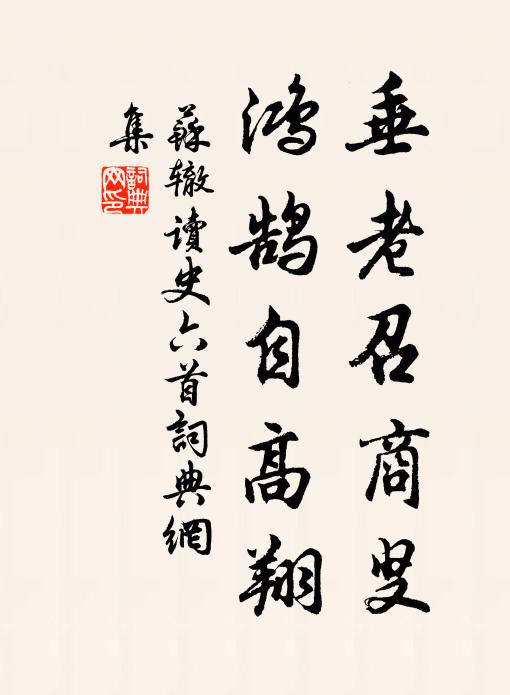 垂老召商叟
鸿鹄自高翔
蘇辙讀史六首詞典網
集
詞典網印